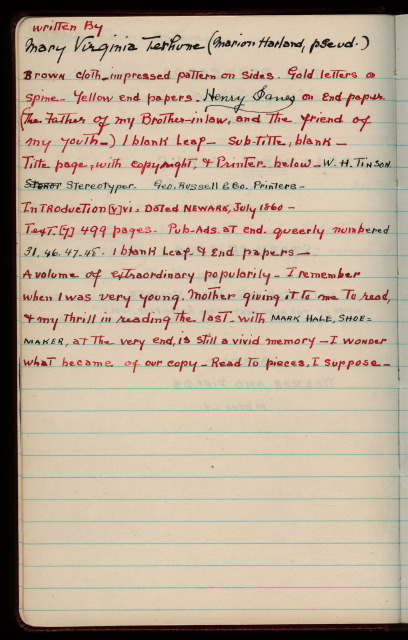 written By
Mary Virginia Terhune (Marion Harland, pseud.)
Brown cloth_impressed pattern on sides. Gold letters on
spine_ Yellow end papers. Henry on End-paper.
(The Father of my Brother-inlaw, and the friend of
my youth_) 1 blank Leaf_ Sub-Title, blank_
Title page, with copyright, & Printer below_ W. H. Tinson
Stereotyper. Geo. Russell & Co. Printers_
Introduction [v] vi. Dated NEWARK, July 1860_
Text_[7] 499 pages. Pub-Ads. at end. queerly numbered
31, 46. 47. 45. 1 blank Leaf & End papers_
A volume of extraordinary popularity_ I remember
when I was very young. Mother giving it to me To read,
& my thrill in reading the last_ with MARK HALE, SHOE=
MAKER, at The very end, is still a vivid memory_ I wonder
what became of our copy_ Read To pieces, I suppose_